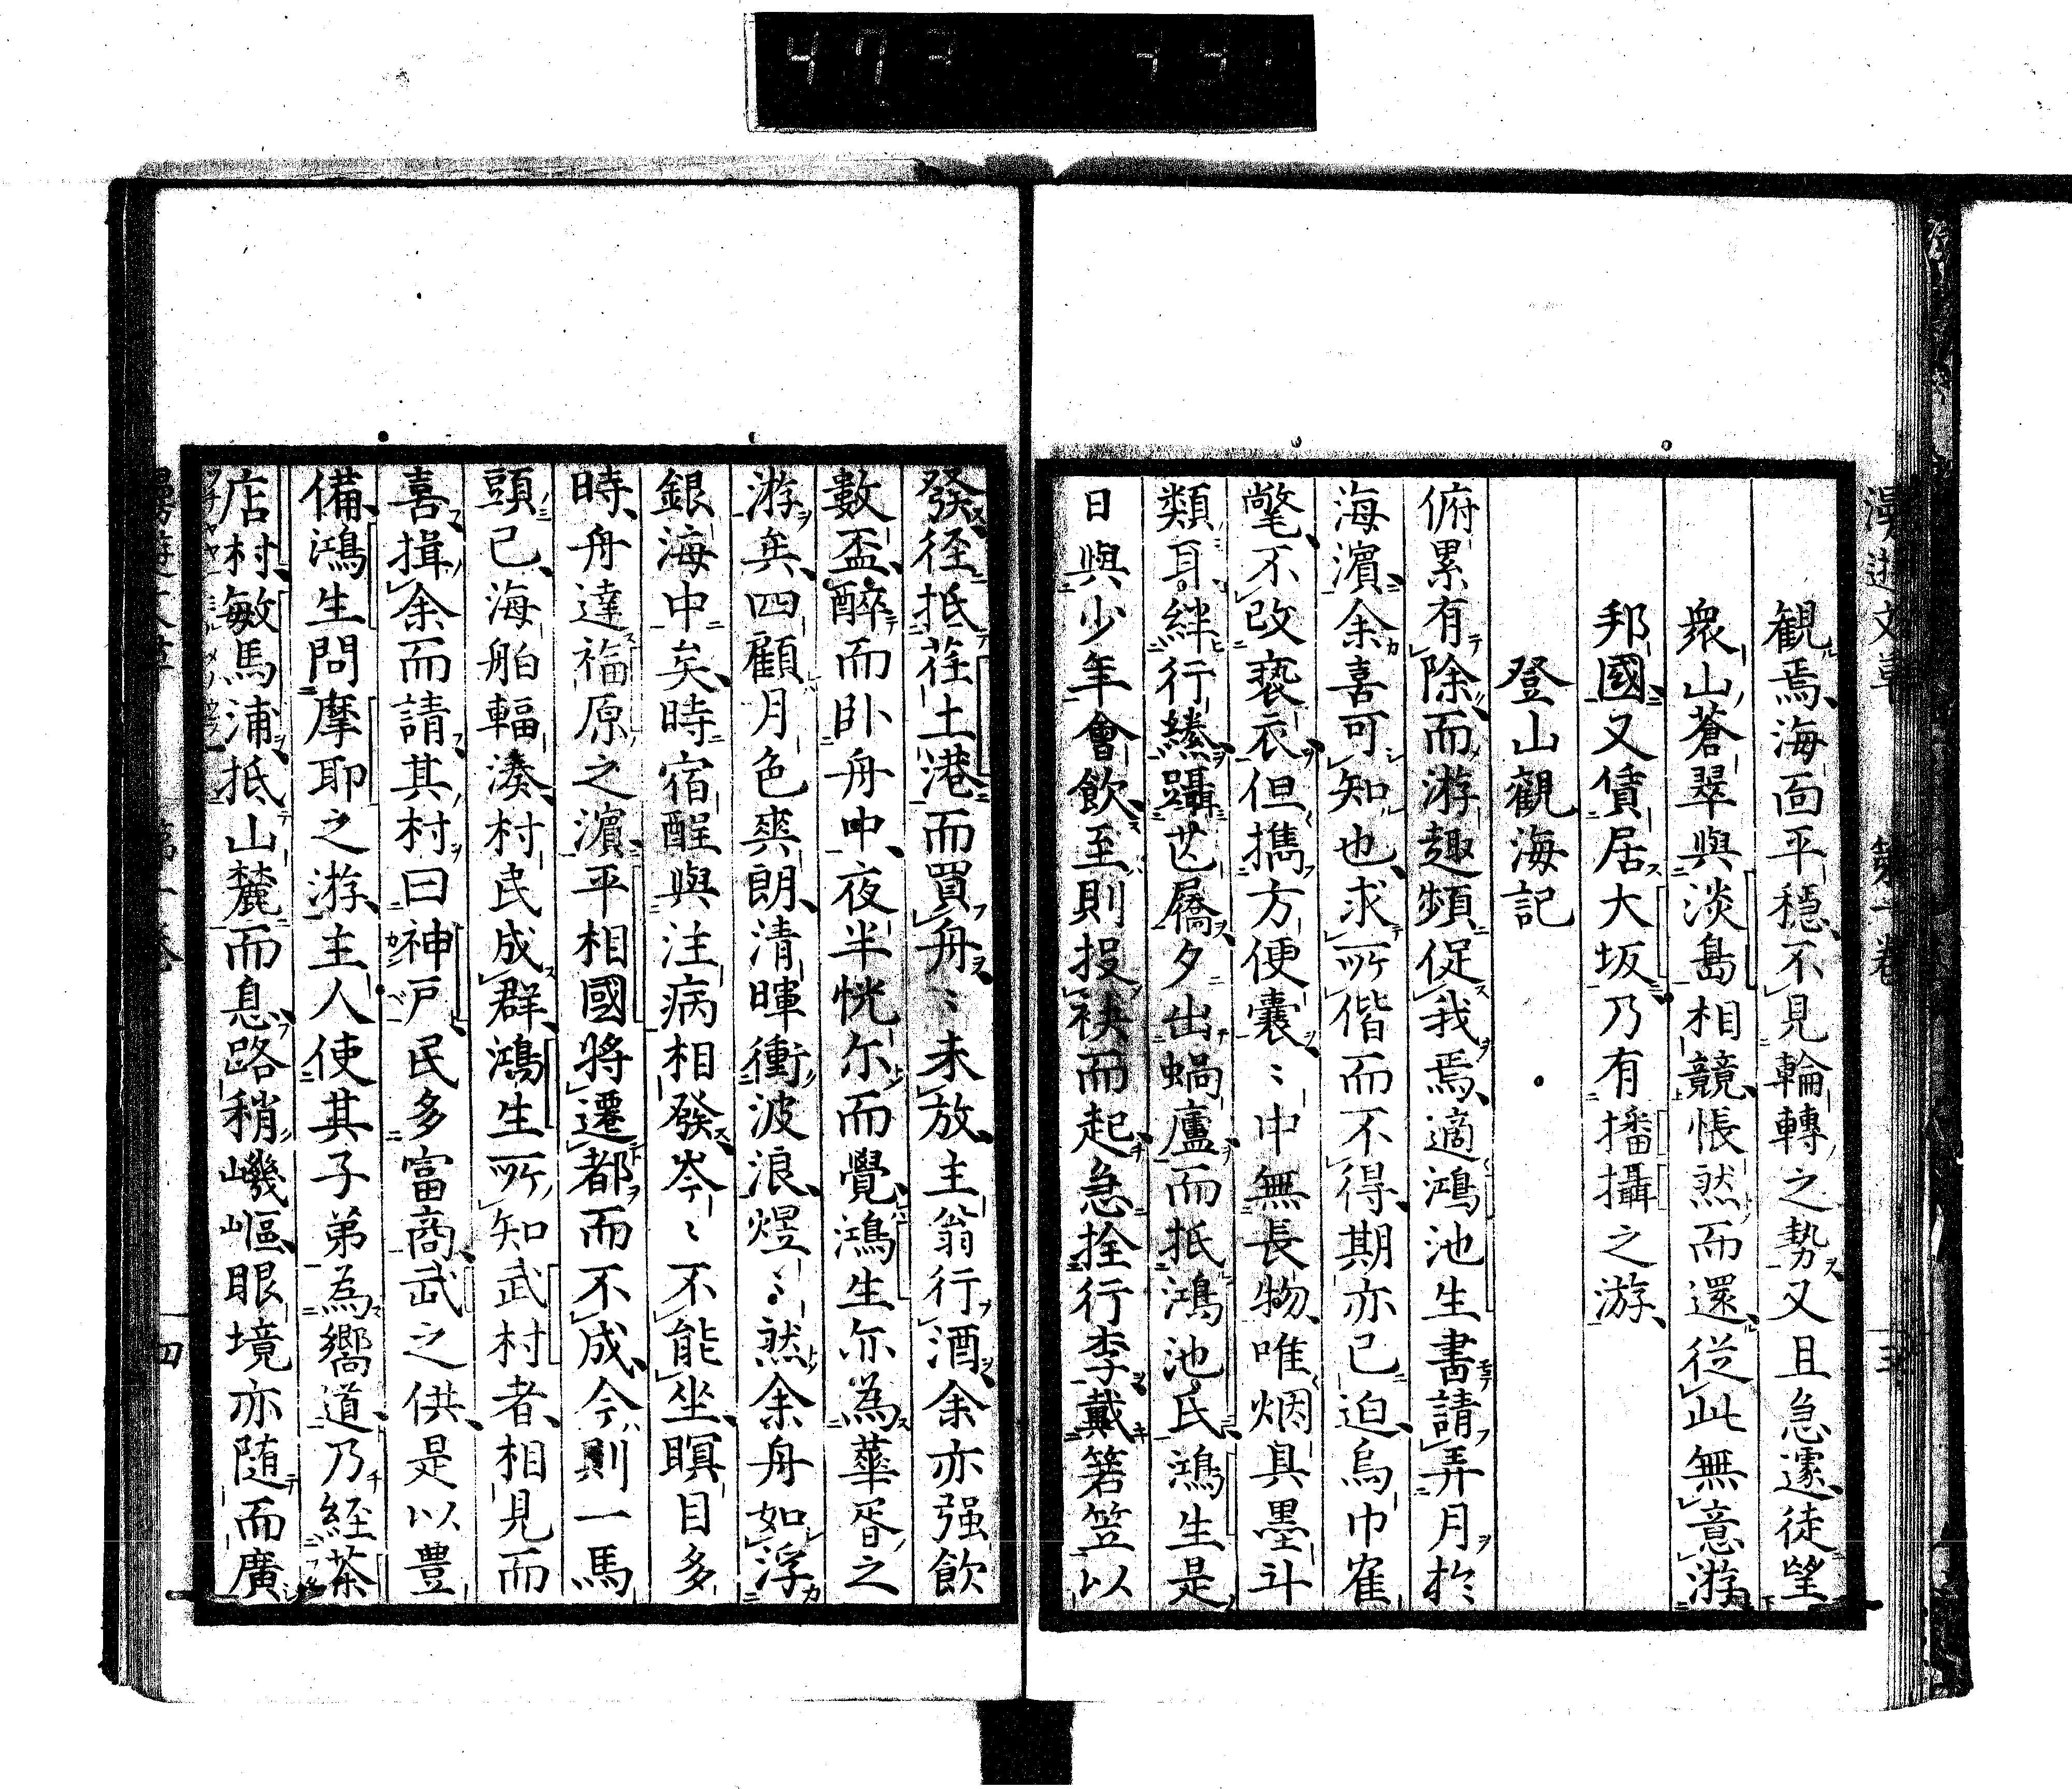 漫遊文草 第一卷 三
觀焉海面平穩不見輪轉之勢又且急遽徒望
衆山蒼翠與淡島相競悵然而還従此無意游
邦國又賃居大坂乃有播攝之游
登山觀海記
俯累有除而游趣頻促我焉適鴻池生書請弄月於
海濵余喜可知也求所偕而不得期亦已迫烏巾隺
氅不改褻衣但擕方便嚢〻中無長物唯烟具墨斗
類耳絆行縢躡芒屩夕出蝸廬而抵鴻池氏鴻生是
日與少年會飲至則投袂而起急拴行李戴箬笠以
發径抵荏土港而買舟〻未放主翁行酒余亦强飲
數盃醉而卧舟中夜半恍尓而覺鴻生亦為華胥之
游矣四顧月色爽朗清暉衝波浪煜〻然余舟如浮
銀海中矣時宿酲與注病相發岑〻不能坐瞑目多
時舟達福原之濵平相國將遷都而不成今則一馬
頭已海舶輻湊村民成群鴻生所知武村者相見而
喜揖余而請其村曰神戸民多富商武之供是以豊
備鴻生問摩耶之游主人使其子弟為嚮道乃経茶
店村敏馬浦抵山麓而息路稍㠜嶇眼境亦随而廣
四